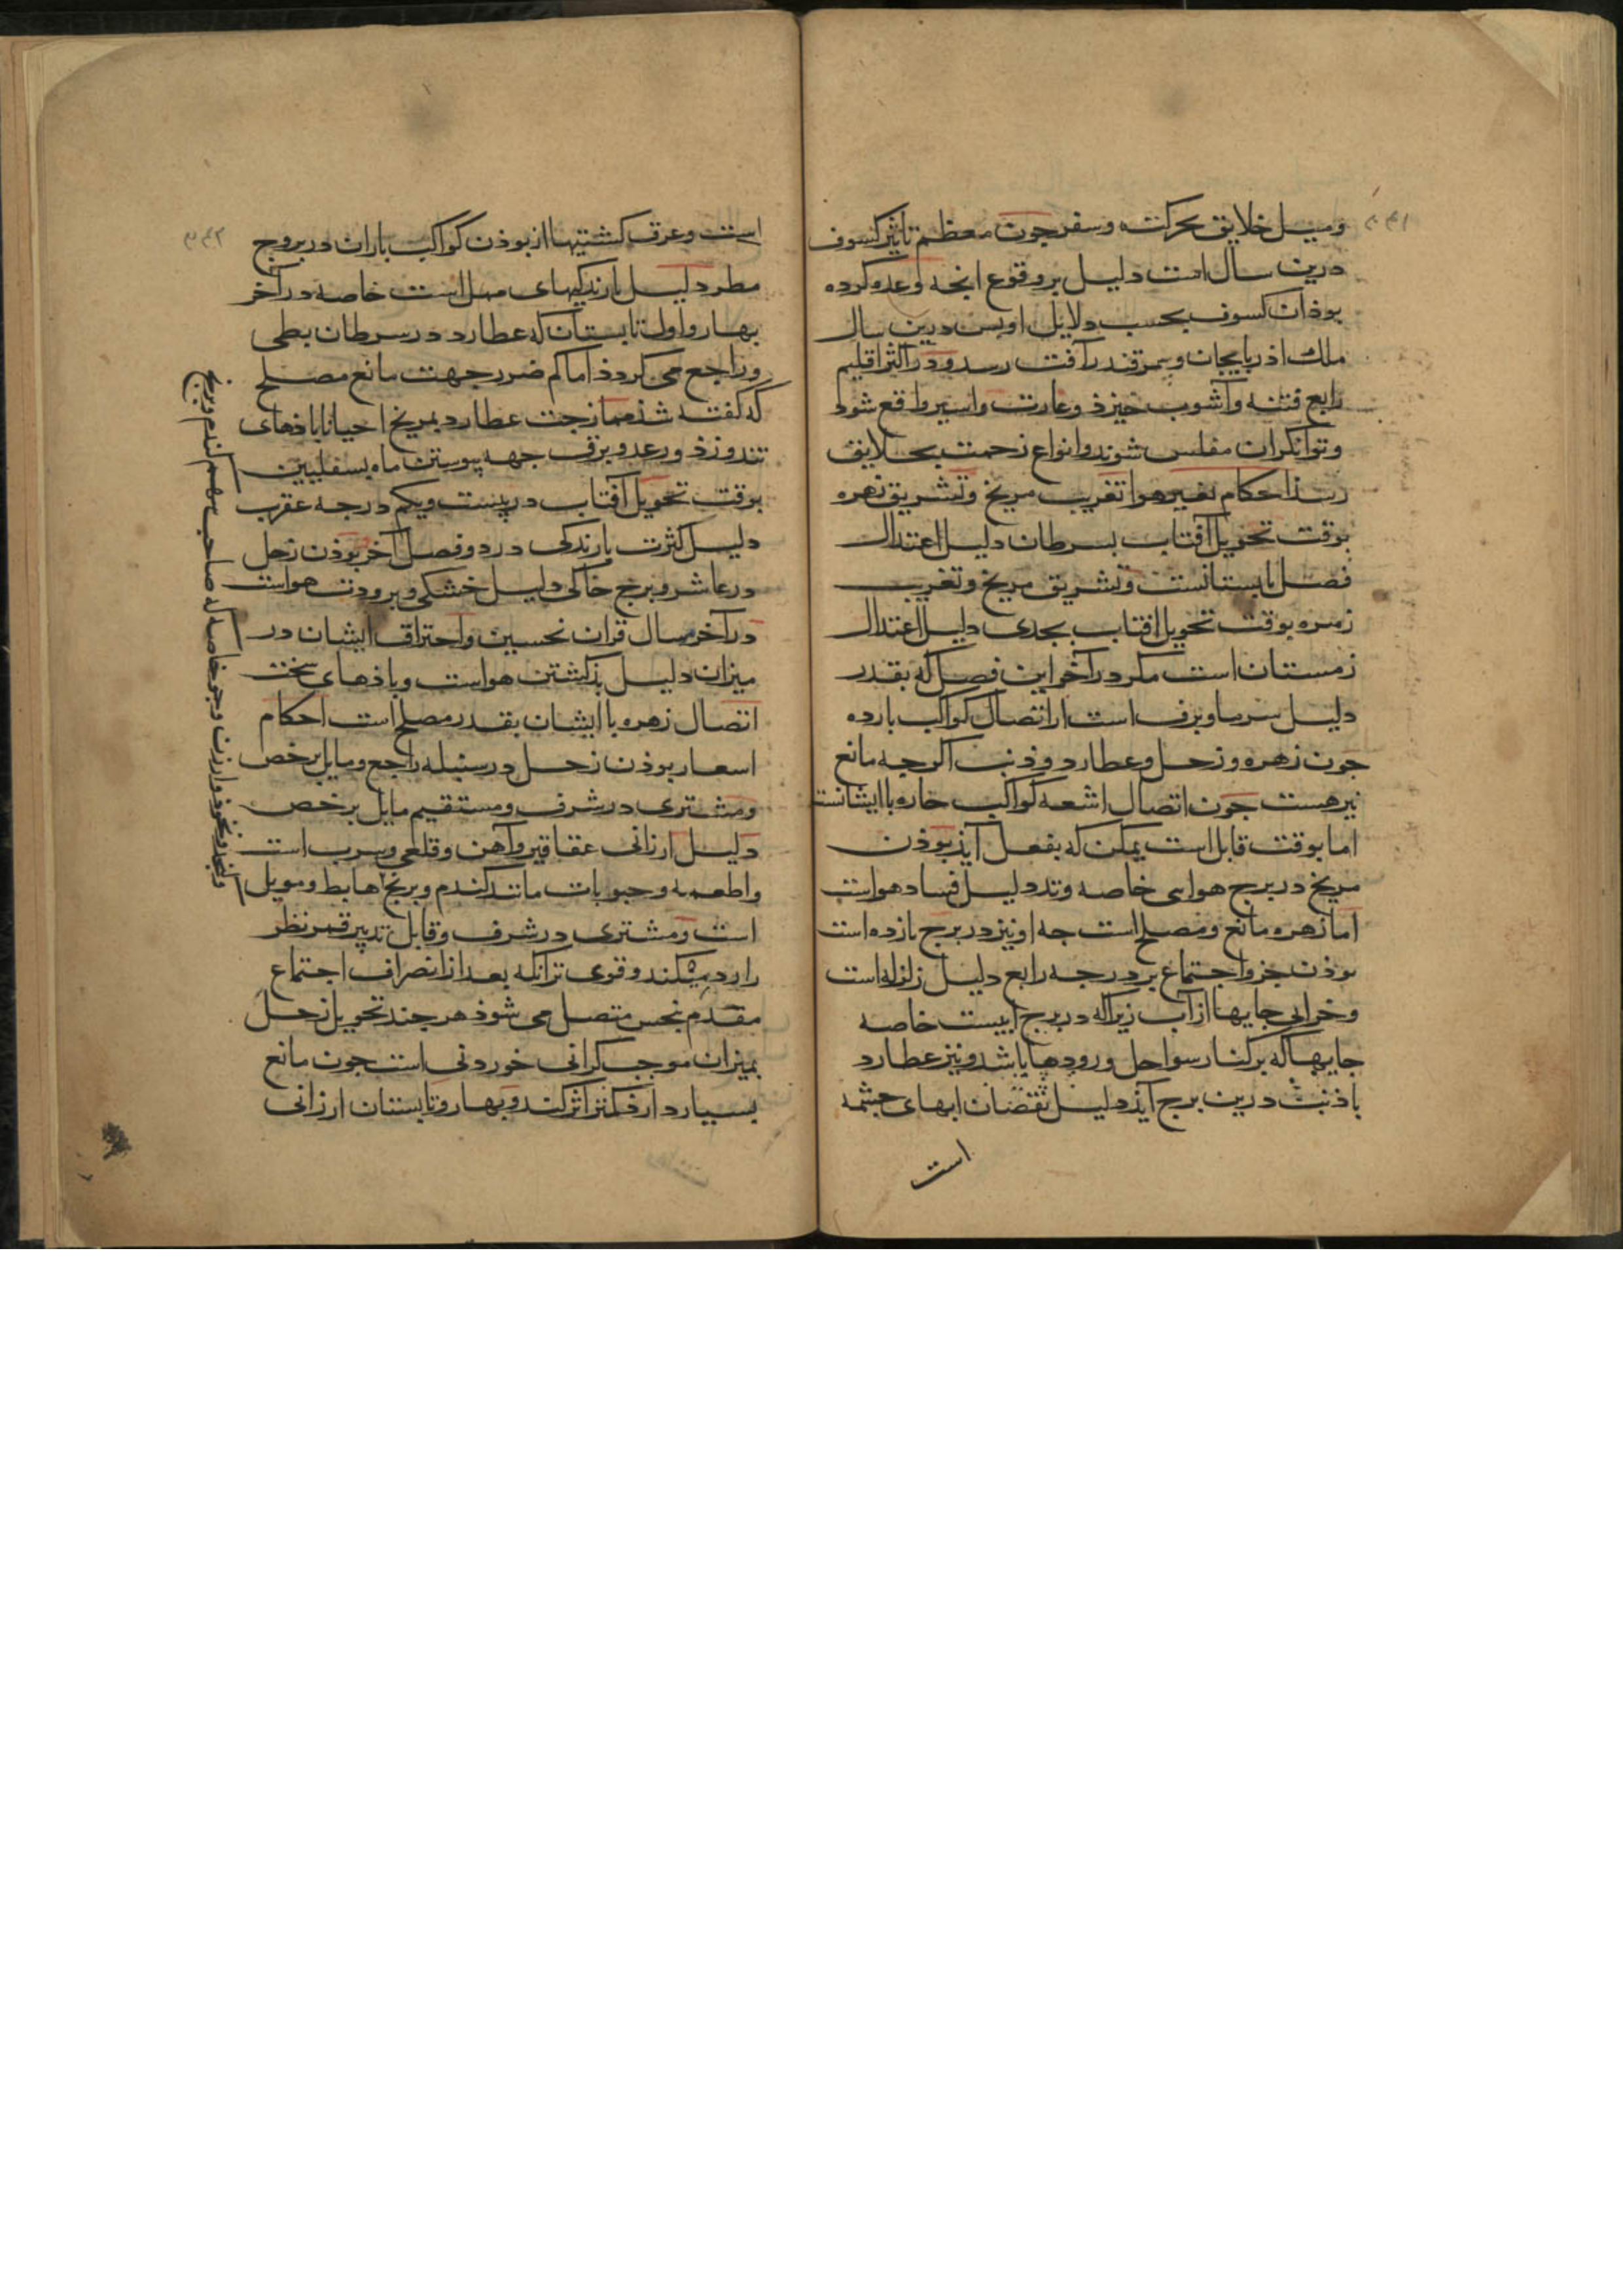 ومیل خلایق بحرکت و سفر جون معظم تاثیر کسوف
درین سال است دلیل بر وقوع انجه وعده کرده
بوذ ان کسوف بحسب دلایل او بس درین سال
ملک اذربایجان و سمرقند را آفت رسد و در اکثر اقلیم
رابع فتنه و آشوب خیزد و غارت و اسیر واقع شود
و توانکران مفلس شوند و انواع زحمت بخلایق
رسذ احکام تغییر هوا تغریب مریخ و تشریق زهره
بوقت تحویل آفتاب بسرطان دلیل اعتدال
فصل تابستانست و تشریق مریخ و تغریب
زهره بوقت تحویل افتاب بجدی دلیل اعتدال
زمستان است مکر در آخر این فصل که بقدر
دلیل سرما و برف است از اتصال کواکب بارده
جون زهره و زحل و عطارد و ذنب اکرجه مانع
نیز هست جون اتصال اشعه کواکب حاره با ایشانست
اما بوقت قابل است یمکن که بفعل آید بوذن
مریخ در برج هوایی خاصه وتد دلیل فساد هواست
اما زهره مانع و مصلح است جه او نیز در برج بارده است
بوذن جزو اجتماع بر درجه رابع دلیل زلزله است
و خرابی جایها از آب زیرا که در برج ابیست خاصه
جایها که بر کنار سواحل و رودها باشد و نیز عطارد
با ذنب درین برج آید دلیل نقصان ابهای جشمه
است
است و غرق کشتیها از بوذن کواکب باران در بروج
مطر دلیل بارندکیهای مهل است خاصه در آخر
بهار و اول تابستان که عطارد در سرطان بطی
و راجع می کردد اما کم ضرر جهت مانع مصلح
که کفته شد ممازجت عطارد بمریخ احیانا باذهای
تند وزد و رعد و برق جهه پیوستن ماه بسفلیین
بوقت تحویل آفتاب در بیست و یکم درجه عقرب
دلیل کثرت بارندکی در دو فصل آخر بوذن زحل
در عاشر و برج خاکی دلیل خشکی و برودت هواست
در آخر سال قران نحسین و احتراق ایشان در
میزان دلیل بذ کشتن هواست و باذهای سخت
اتصال زهره با ایشان بقدر مصلح است احکام
اسعار بوذن زحل در سنبله راجع و مایل برخص
و مشتری در شرف و مستقیم مایل برخص
دلیل ارزانی عقاقیر و آهن و قلعی و سرب است
و اطعمه و حبوبات مانند کندم و برنج هابط و موبل
است و مشتری در شرف و قابل تدبیر قمر نظر
را رد میکند و قوی تر انکه بعد از انصراف اجتماع
مقدم بنحس متصل می شوذ هر جند تحویل زحل
بمیزان موجب کرانی خوردنی است جون مانع
بسیار دارد کمتر اثر کند و بهار و تابستان ارزانی